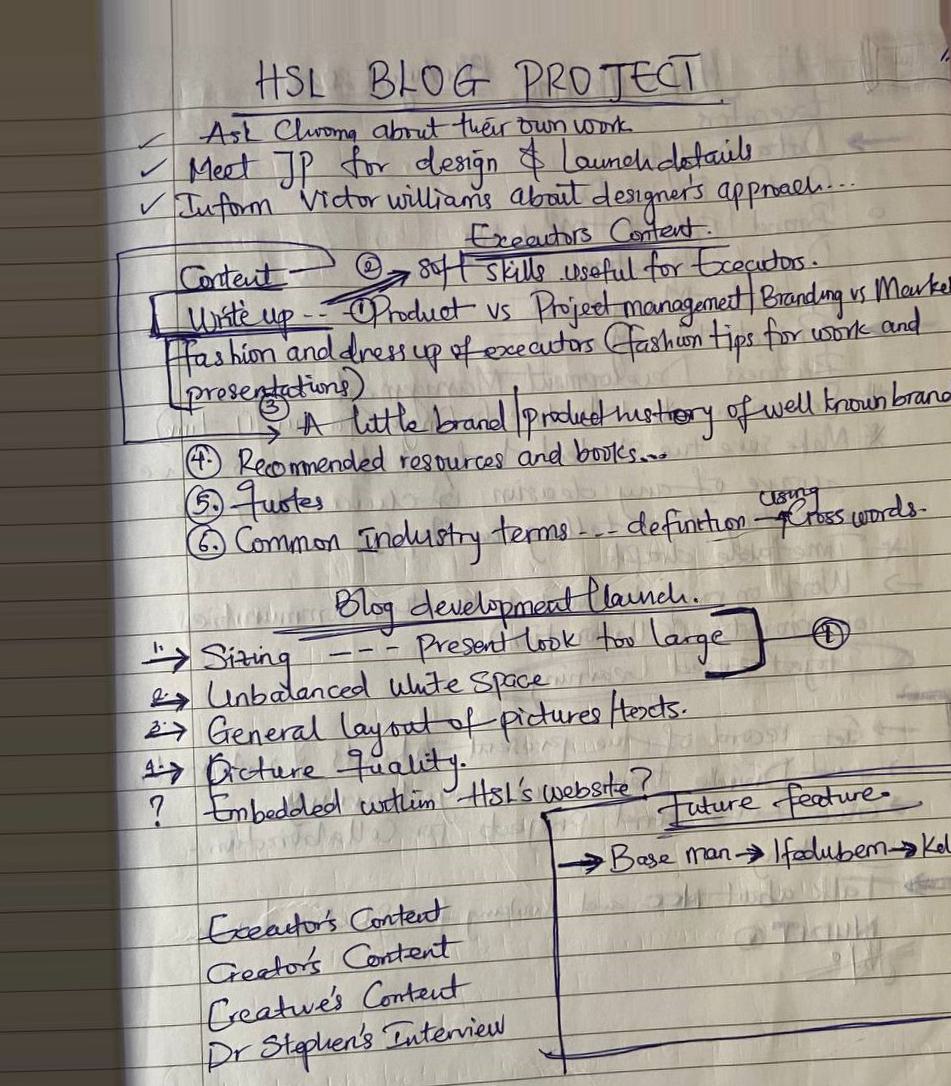 HSL BLOG PROJECT
✓ Ask Chioma about their own work
✓ Meet JP for design & Launch details
✓ Inform Victor williams about designer's approach...
Executors Content.
Content ② → soft skills useful for Executors.
Write up -- ① Product vs Project management | Branding vs Market
fashion and dress up of executors (fashion tips for work and
presentations)
③ → A little brand/product history of well known brand
④. Recommended resources and books...
⑤. Quotes
⑥. Common Industry terms --- definition → using Cross words.
Blog development / launch.
1. → Sizing --- Present look too large ①
2. → Unbalanced White Space
3. → General layout of pictures / texts.
4. → Picture Quality.
? Embedded within HSL's website?
Future feature.
→ Base man → Ifedubem → Kel
Executor's Content
Creator's Content
Creative's Content
Dr Stephen's Interview